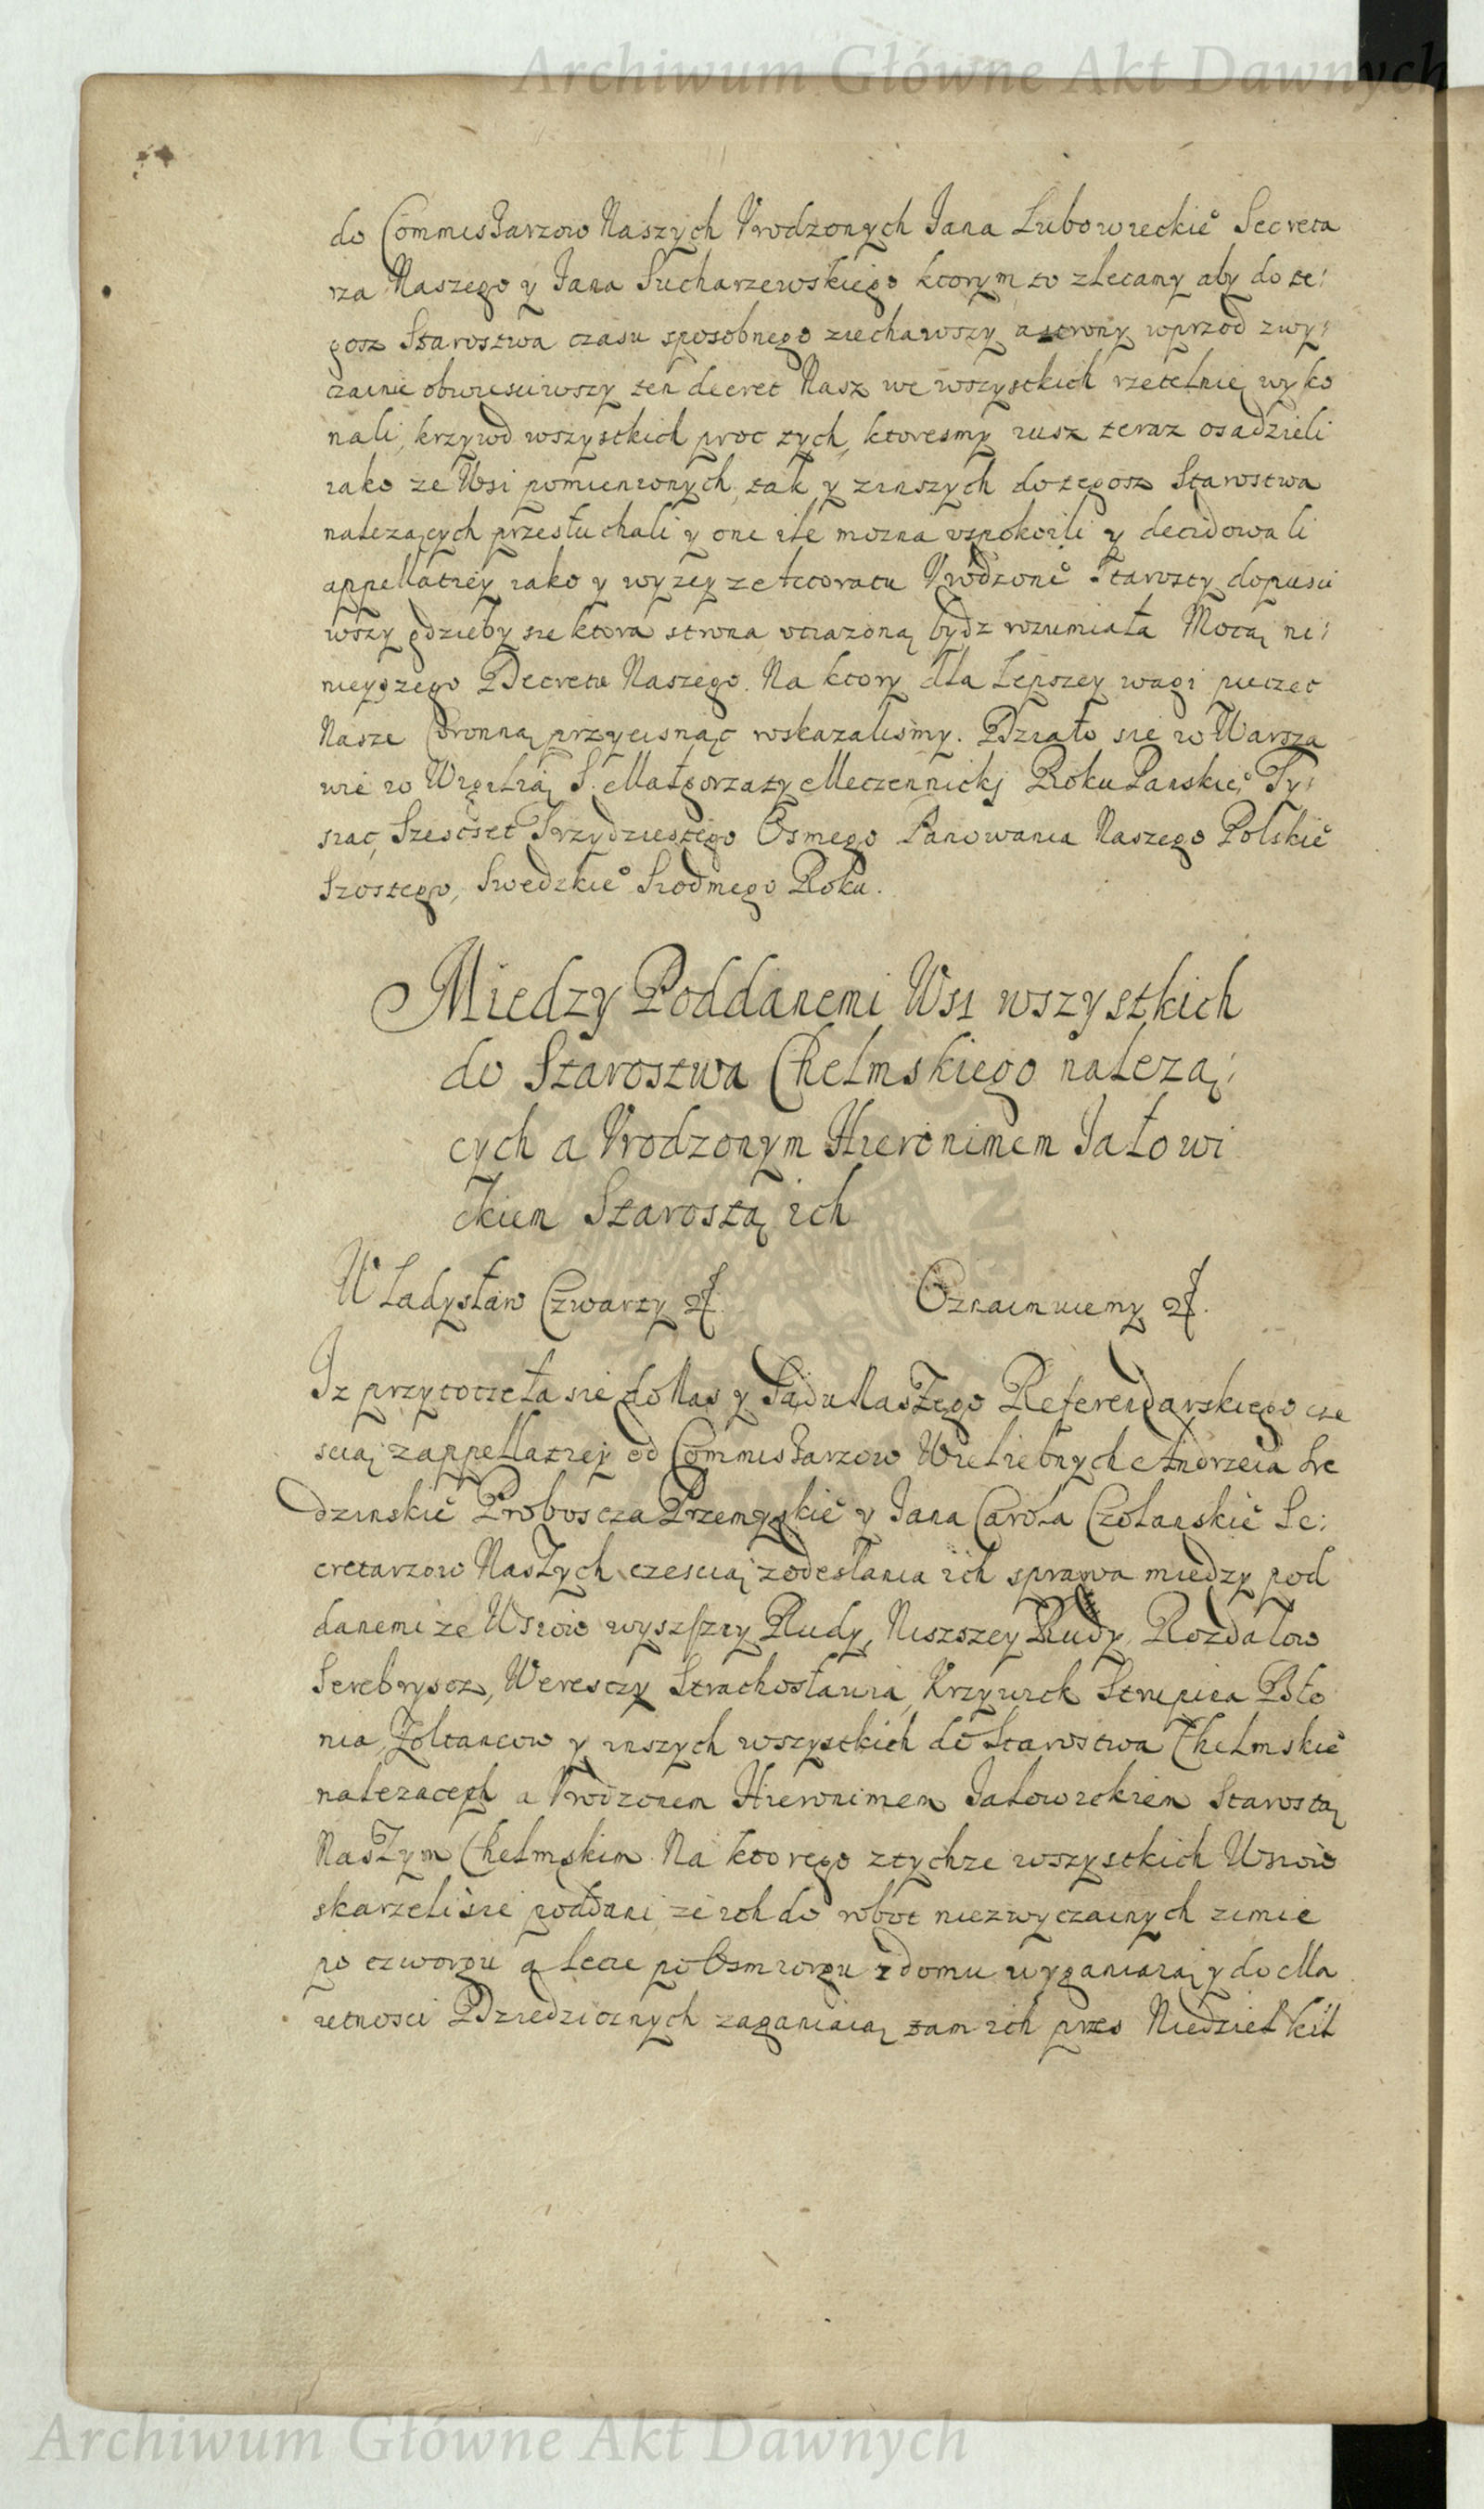 Archiwum Główne Akt Dawnych
do Commissarzow Naszych Vrodzonych Jana Lubowieckie° Secreta
rza Naszego y Jana Sucharzewskiego ktorym to zlecamy aby do te:
gosz Starostwa czasu sposobnego ziechawszy a strony wprzod zwy:
czainie obwiesciwszy ten decret Nasz we wszystkich rzetelnie wyko
nali, krzywd wszystkich proc tych, ktoresmy iusz teraz osadzieli
iako ze Wsi pomienionych, tak y zinszych do tegosz Starostwa
nalezących przesłuchali y one ile mozna vspokoili y decidowali
appellatiey iako y wyzey ze Actoratu Vrodzone° Starosty dopusci
wszy gdzieby sie ktora strona vciązoną bydz rozumiała Mocą ni:
nieyszego Decretu Naszego. Na ktory dla Lepszey wagi pieczec
Nasze Coronną przycisnąc roskazalismy. Działo sie w Warsza
wie w Wigilią S. Małgorzaty Meczennickj Roku Panskie° Ty:
siąc Szescset Trzydziestego Osmego Panowania Naszego Polskie°
Szostego, Swedzkie° Siodmego Roku.
Miedzy Poddanemi Wsi wszystkich
do Starostwa Chelmskiego nalezą:
cych a Vrodzonym Hieronimem Jałowi
ckiem Starostą ich
Władysław Czwarty &. Oznaimuiemy &.
Jz przytoczeła sie do Nas y Sądu Naszego Referendarskiego cze
scią zappellatiey od Commissarzow Wielebnych Andrzeia Sre
dzinskie° Proboscza Przemyskie° y Jana Carola Czolanskie° Se:
cretarzow Naszych czescią zodesłania ich sprawa miedzy pod
danemi ze Wsiow wyszszey Rudy, Niszszey Rudy, Rozdałow
Serebryscz, Weresczy Strachosławia, Krzywick Strupica Pło
nia, Zoltancow y inszych wszystkich do Starostwa Chelmskie°
nalezacech a Vrodzonem Hieronimem Jalowickiem Starostą
Naszym Chelmskim. Na ktorego ztychze wszystkich Wsiow
skarzeli sie poddani ze ich do robot niezwyczainych zimie
po czworgu a lecie po Osmiorgu z domu wyganiaią y do Ma
ietnosci Dziedzicznych zaganiaią tam ich przes Niedziel kil
Archiwum Główne Akt Dawnych